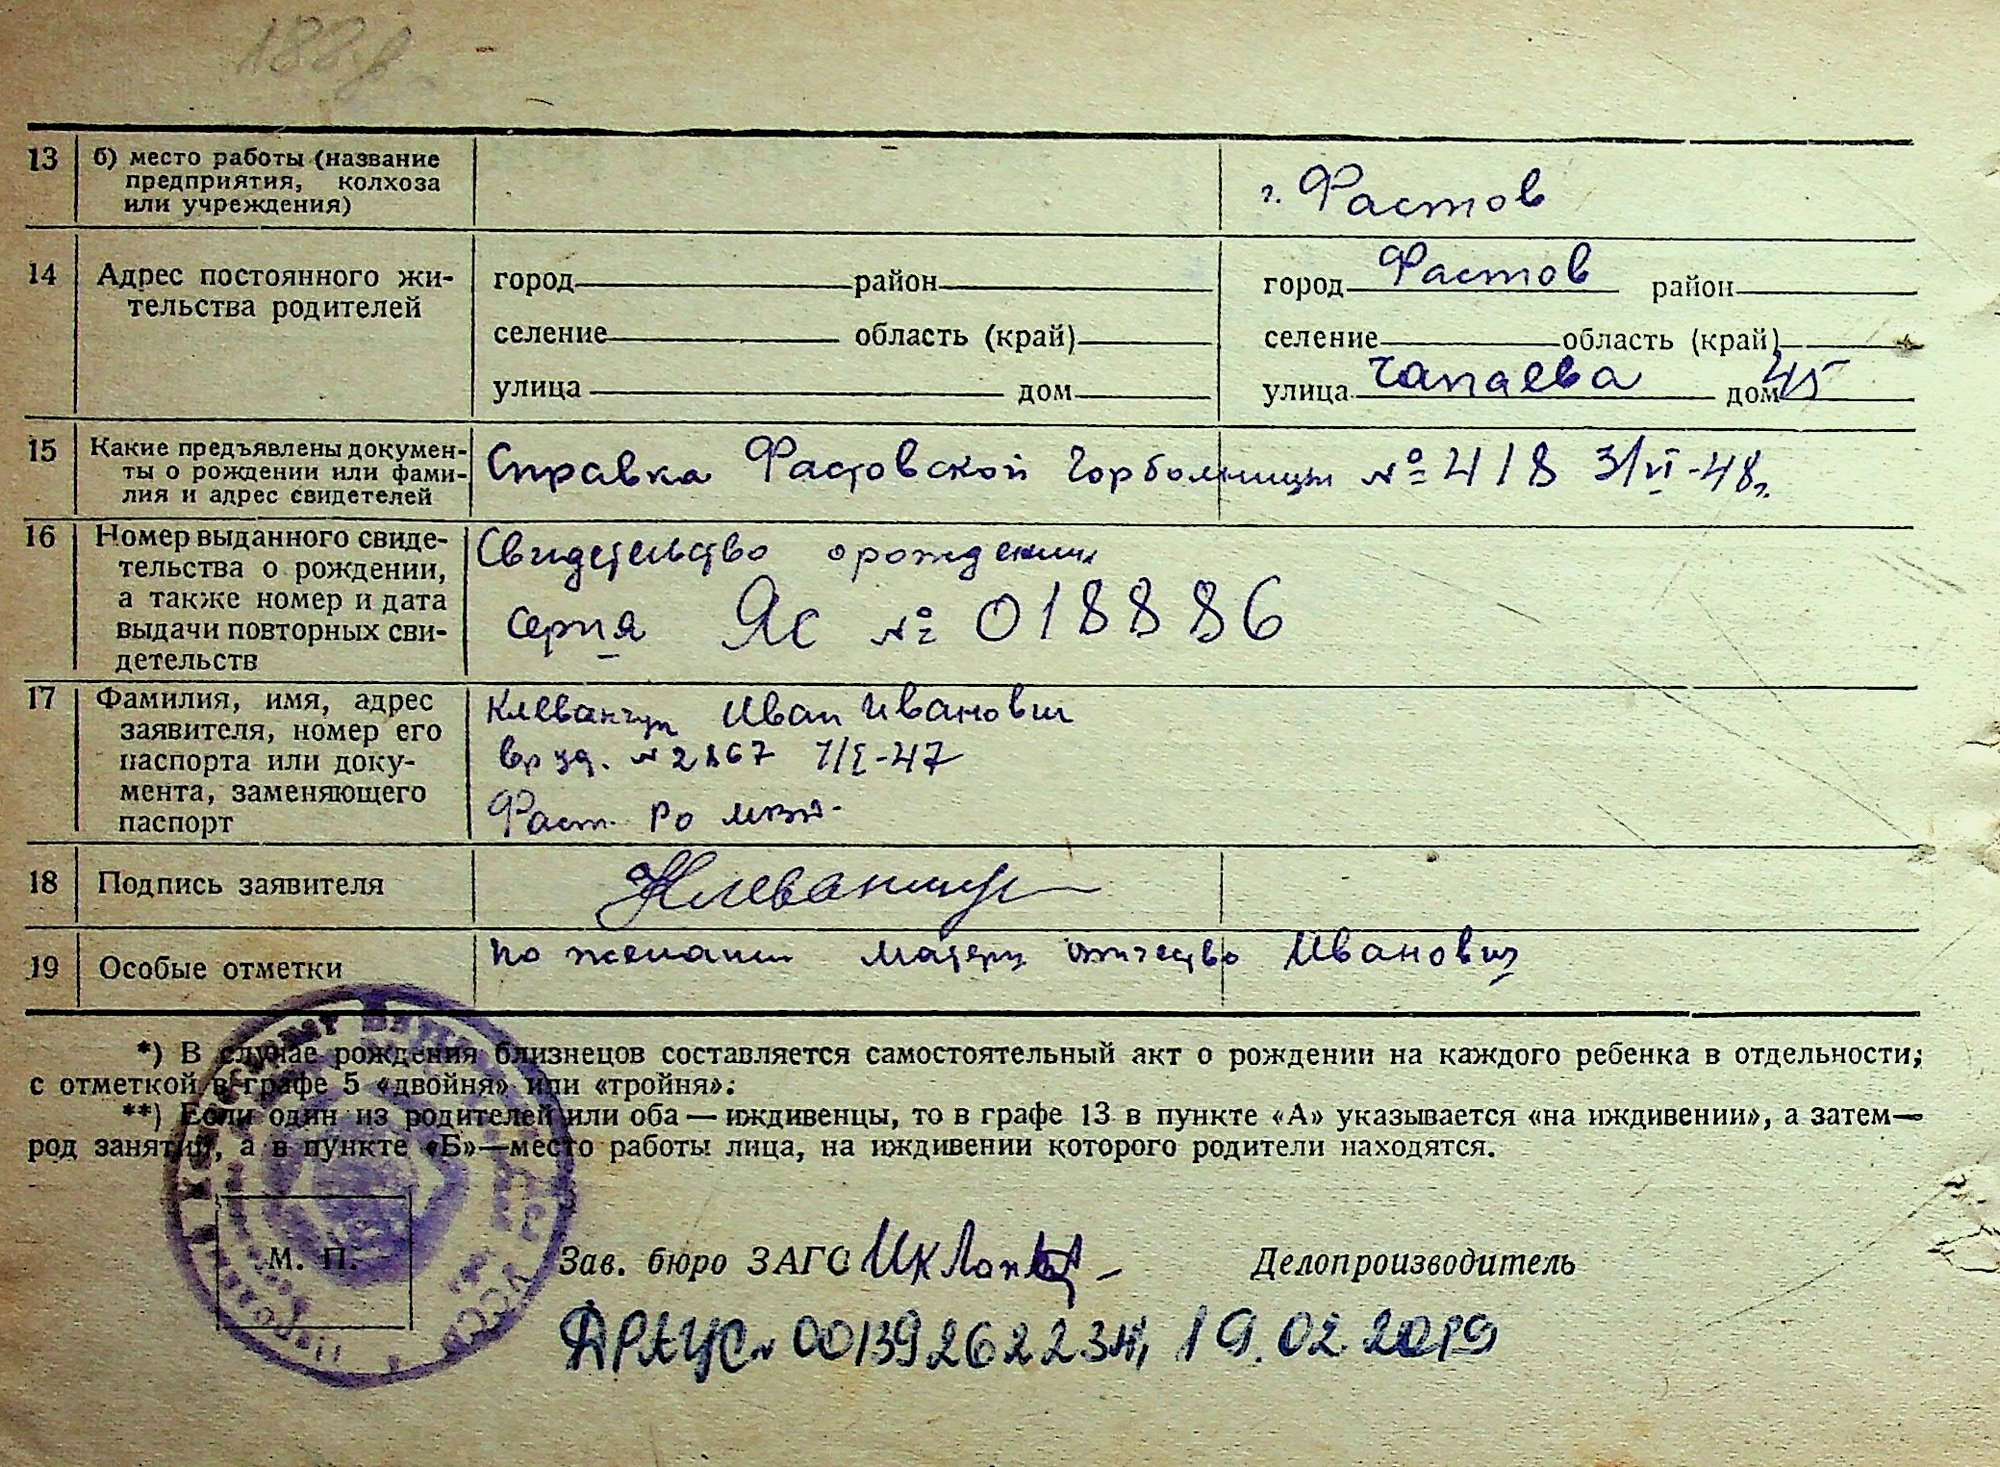 13 б) место работы (название
предприятия, колхоза
или учреждения)
г. Фастов
14 Адрес постоянного жи-
тельства родителей
город район
город Фастов район
селение область (край)
селение область (край)
улица дом
улица Чапаева дом 45
15 Какие предъявлены докумен-
ты о рождении или фами-
лия и адрес свидетелей
Справка Фастовской Горбольницы № 418 3/VI-48г.
16 Номер выданного свиде-
тельства о рождении,
а также номер и дата
выдачи повторных сви-
детельств
Свидетельство о рождении
серия Яс № 018886
17 Фамилия, имя, адрес
заявителя, номер его
паспорта или доку-
мента, заменяющего
паспорт
Клеванчук Иван Иванович
вр уд. № 2867 7/I-47
Фаст. РО
18 Подпись заявителя
Клеванчук
19 Особые отметки
по желани матери отчество Иванович
*) В случае рождения близнецов составляется самостоятельный акт о рождении на каждого ребенка в отдельности,
с отметкой в графе 5 «двойня» или «тройня».
**) Если один из родителей или оба — иждивенцы, то в графе 13 в пункте «А» указывается «на иждивении», а затем—
род занятий, а в пункте «Б»—место работы лица, на иждивении которого родители находятся.
М. П.
Зав. бюро ЗАГС
Делопроизводитель
ДРАЦС № 00139262234, 19.02.2019
УССР